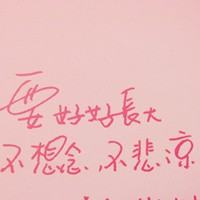 要好好長大
不想念,不悲涼